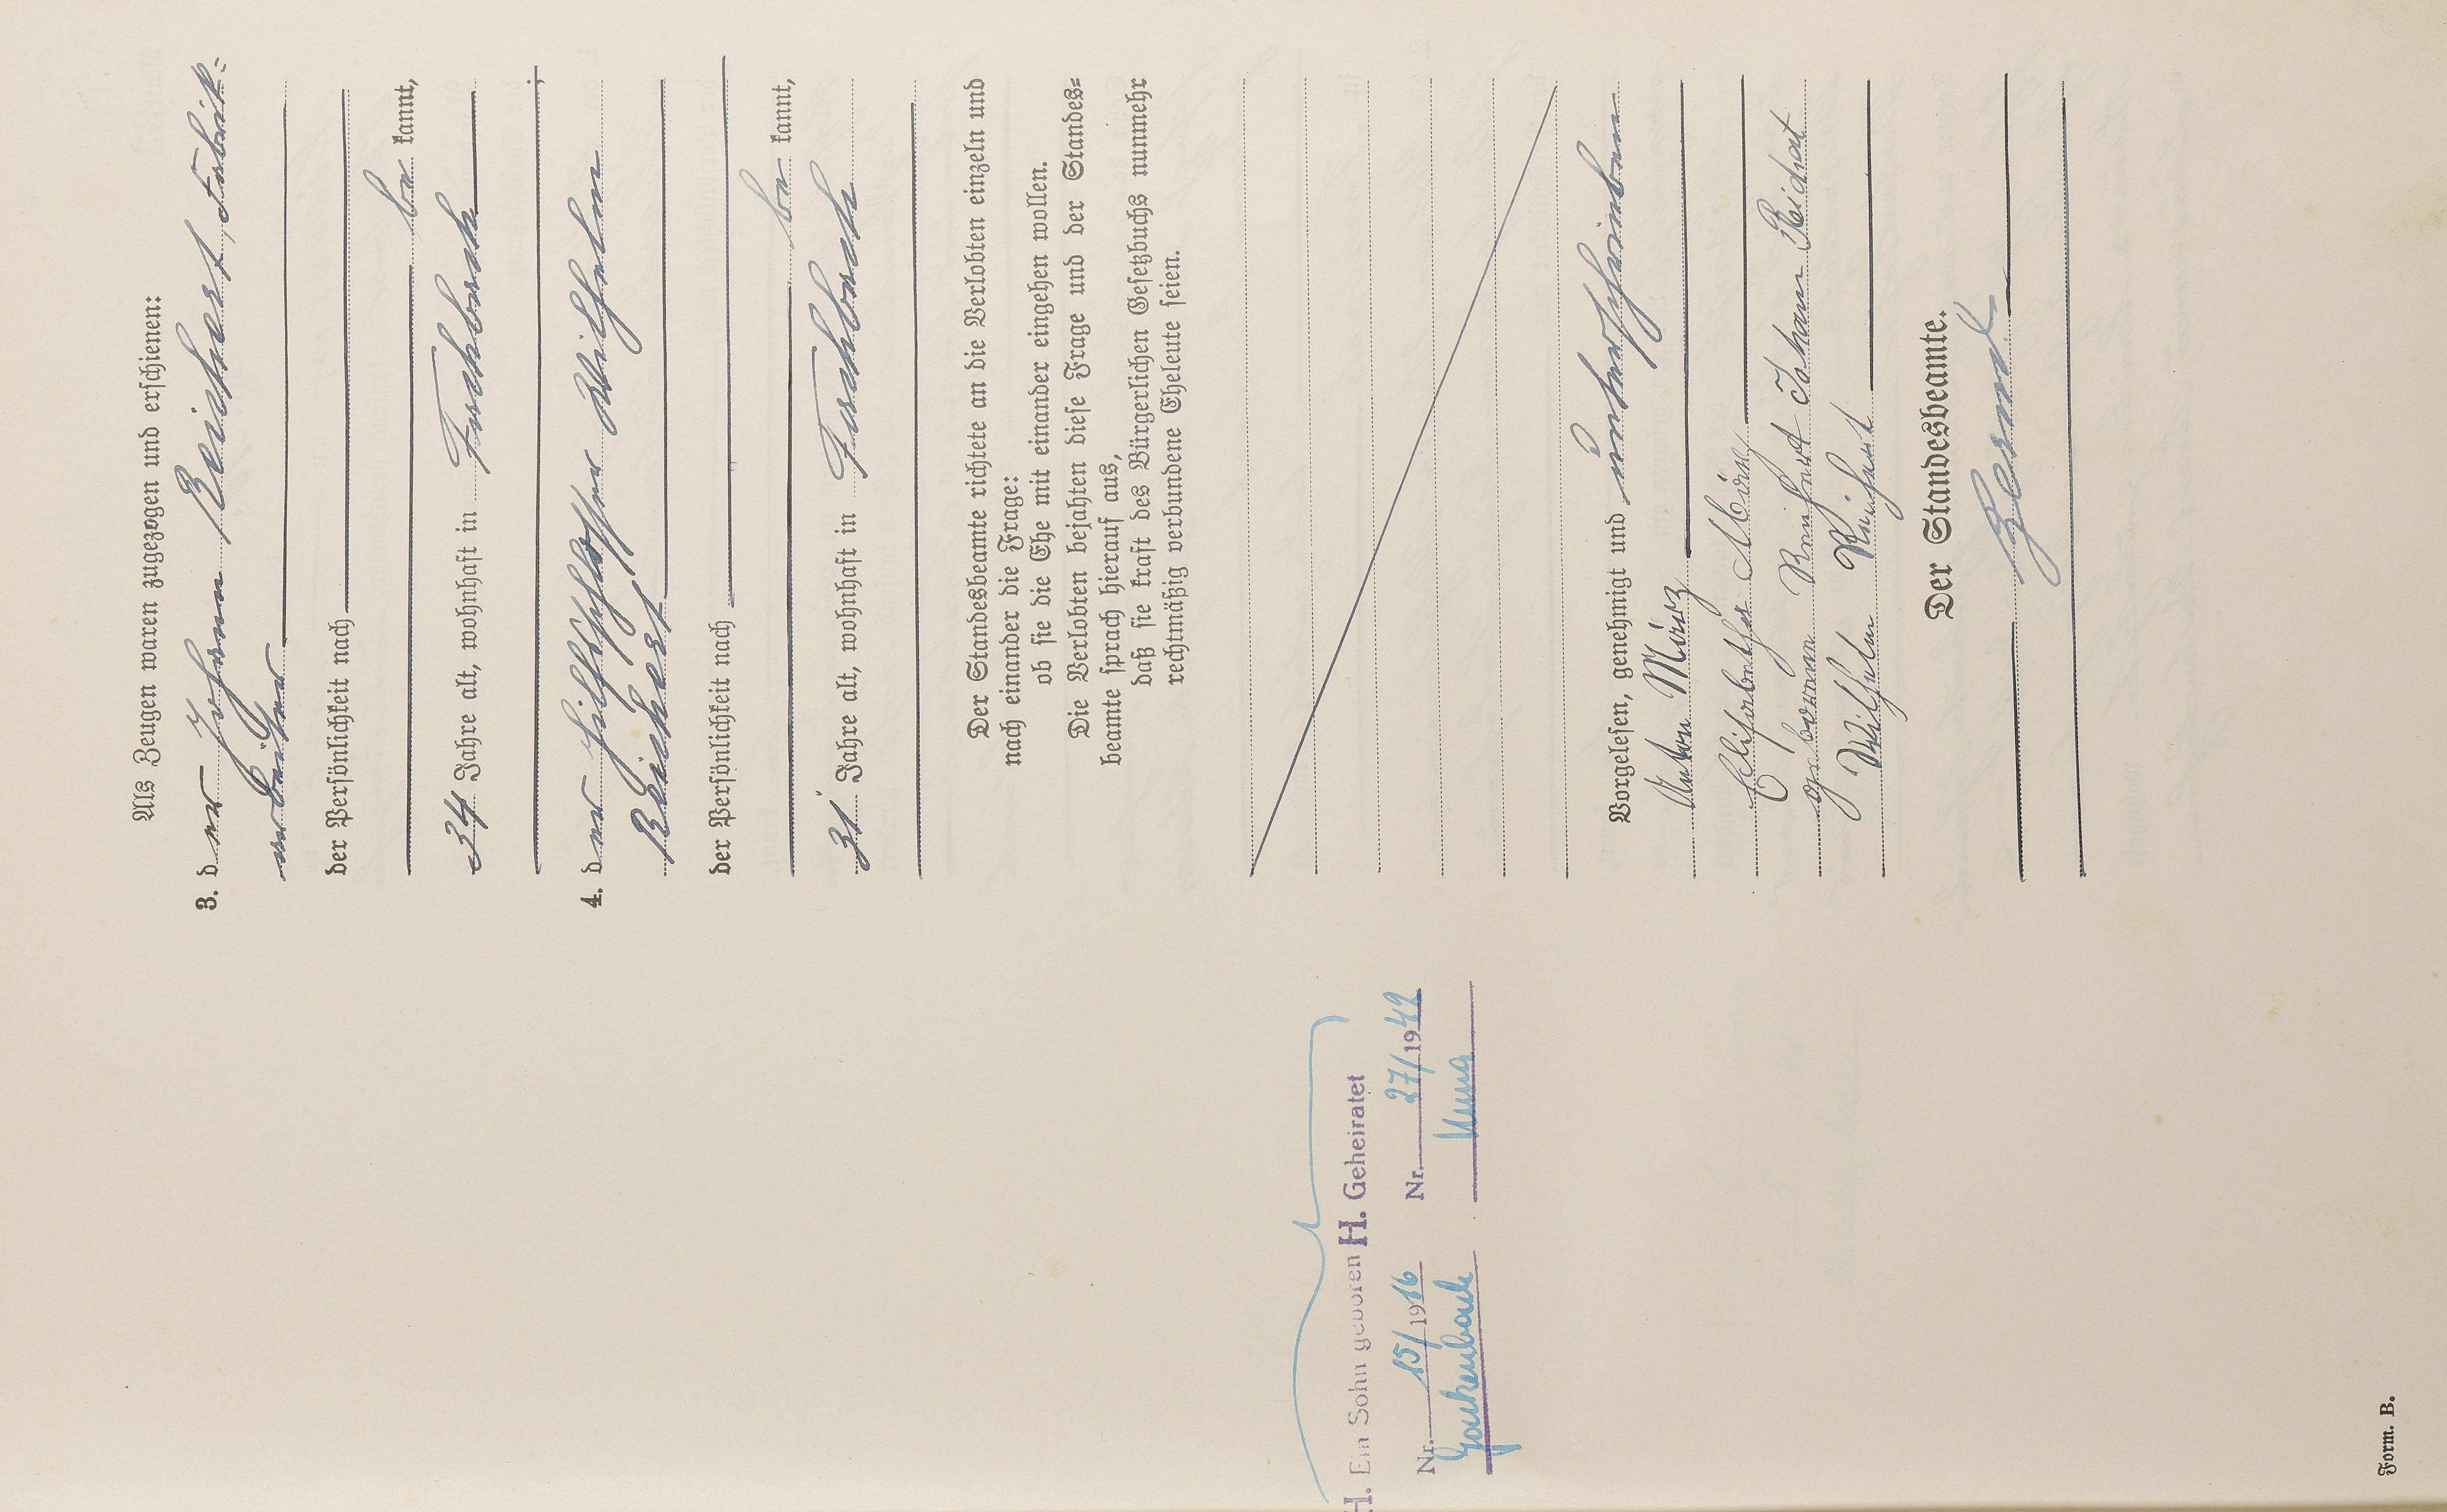 Als Zeugen waren zugezogen und erschienen:
3. der Johann Reichert, Fabrik-
arbeiter
der Persönlichkeit nach
be kannt,
34 Jahre alt, wohnhaft in
4. der Hilfsschlosser Wilhelm
Reichert
der Persönlichkeit nach
be kannt,
31 Jahre alt, wohnhaft in
Der Standesbeamte richtete an die Verlobten einzeln und
nach einander die Frage:
ob sie die Ehe mit einander eingehen wollen.
Die Verlobten bejahten diese Frage und der Standes-
beamte sprach hierauf aus,
daß sie kraft des Bürgerlichen Gesetzbuchs nunmehr
rechtmäßig verbundene Eheleute seien.
Vorgelesen, genehmigt und unterschrieben
Anton März
Elisabetha März
geborene Johann
Wilhelm
Der Standesbeamte.
H. Ein Sohn geboren
Nr. 15/1916
Gackenbach
H. Geheiratet
Nr. 27/1942
Form. B.